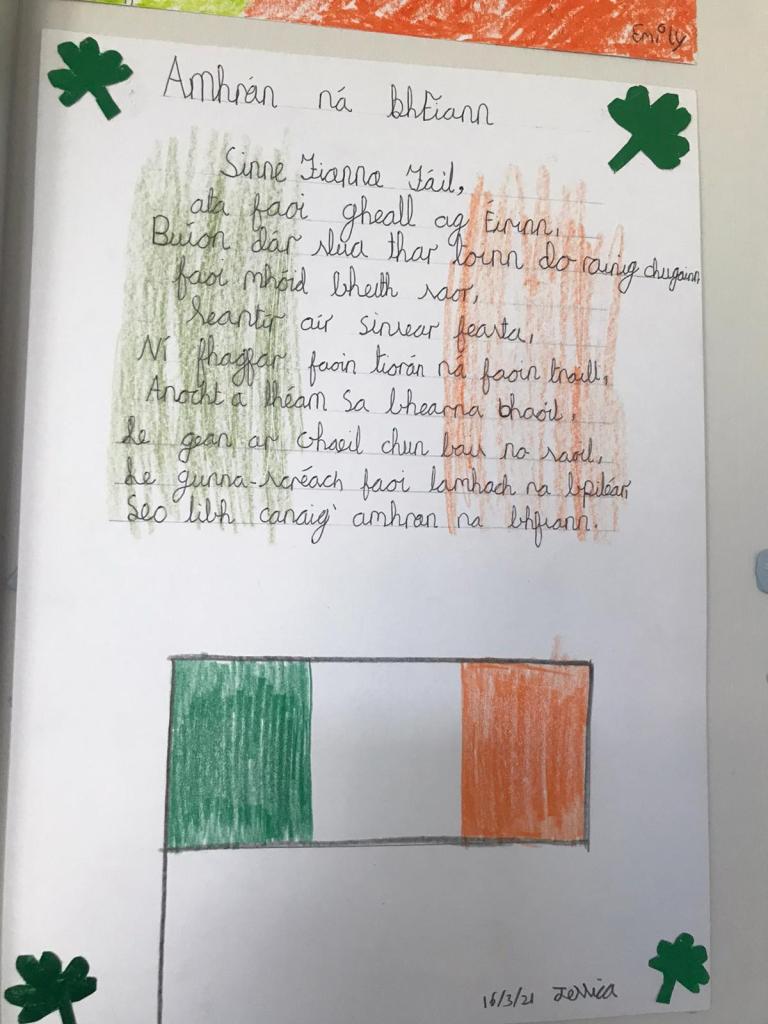 Emily
Amhrán ná bhFiann
Sinne Fianna Fáil,
ata faoi gheall ag Éirinn,
Buíon dár slua thar toinn do rainig chugainn,
faoi mhóid bheith saor,
Seantír air sinsear feasta,
Ní fhagfar faoin tiorán ná faoin traill,
Anocht a théam sa bhearna bhaoil,
Le gean ar Ghaeil chun bais no saoil,
Le gunna-scréach faoi lamhach na bpiléar
Seo libh canaig' amhran na bhfiann.
16/3/21 Jessica